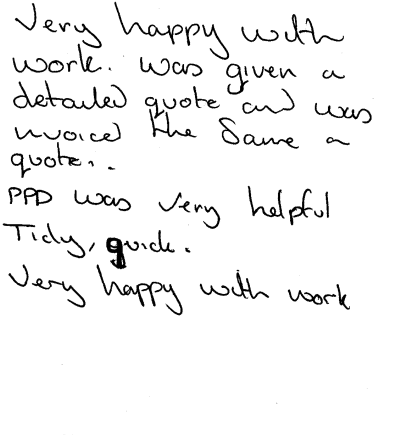 Very happy with
work. was given a
detailed quote and was
invoiced the same a
quote..
PPD was very helpful
Tidy, quick.
Very happy with work